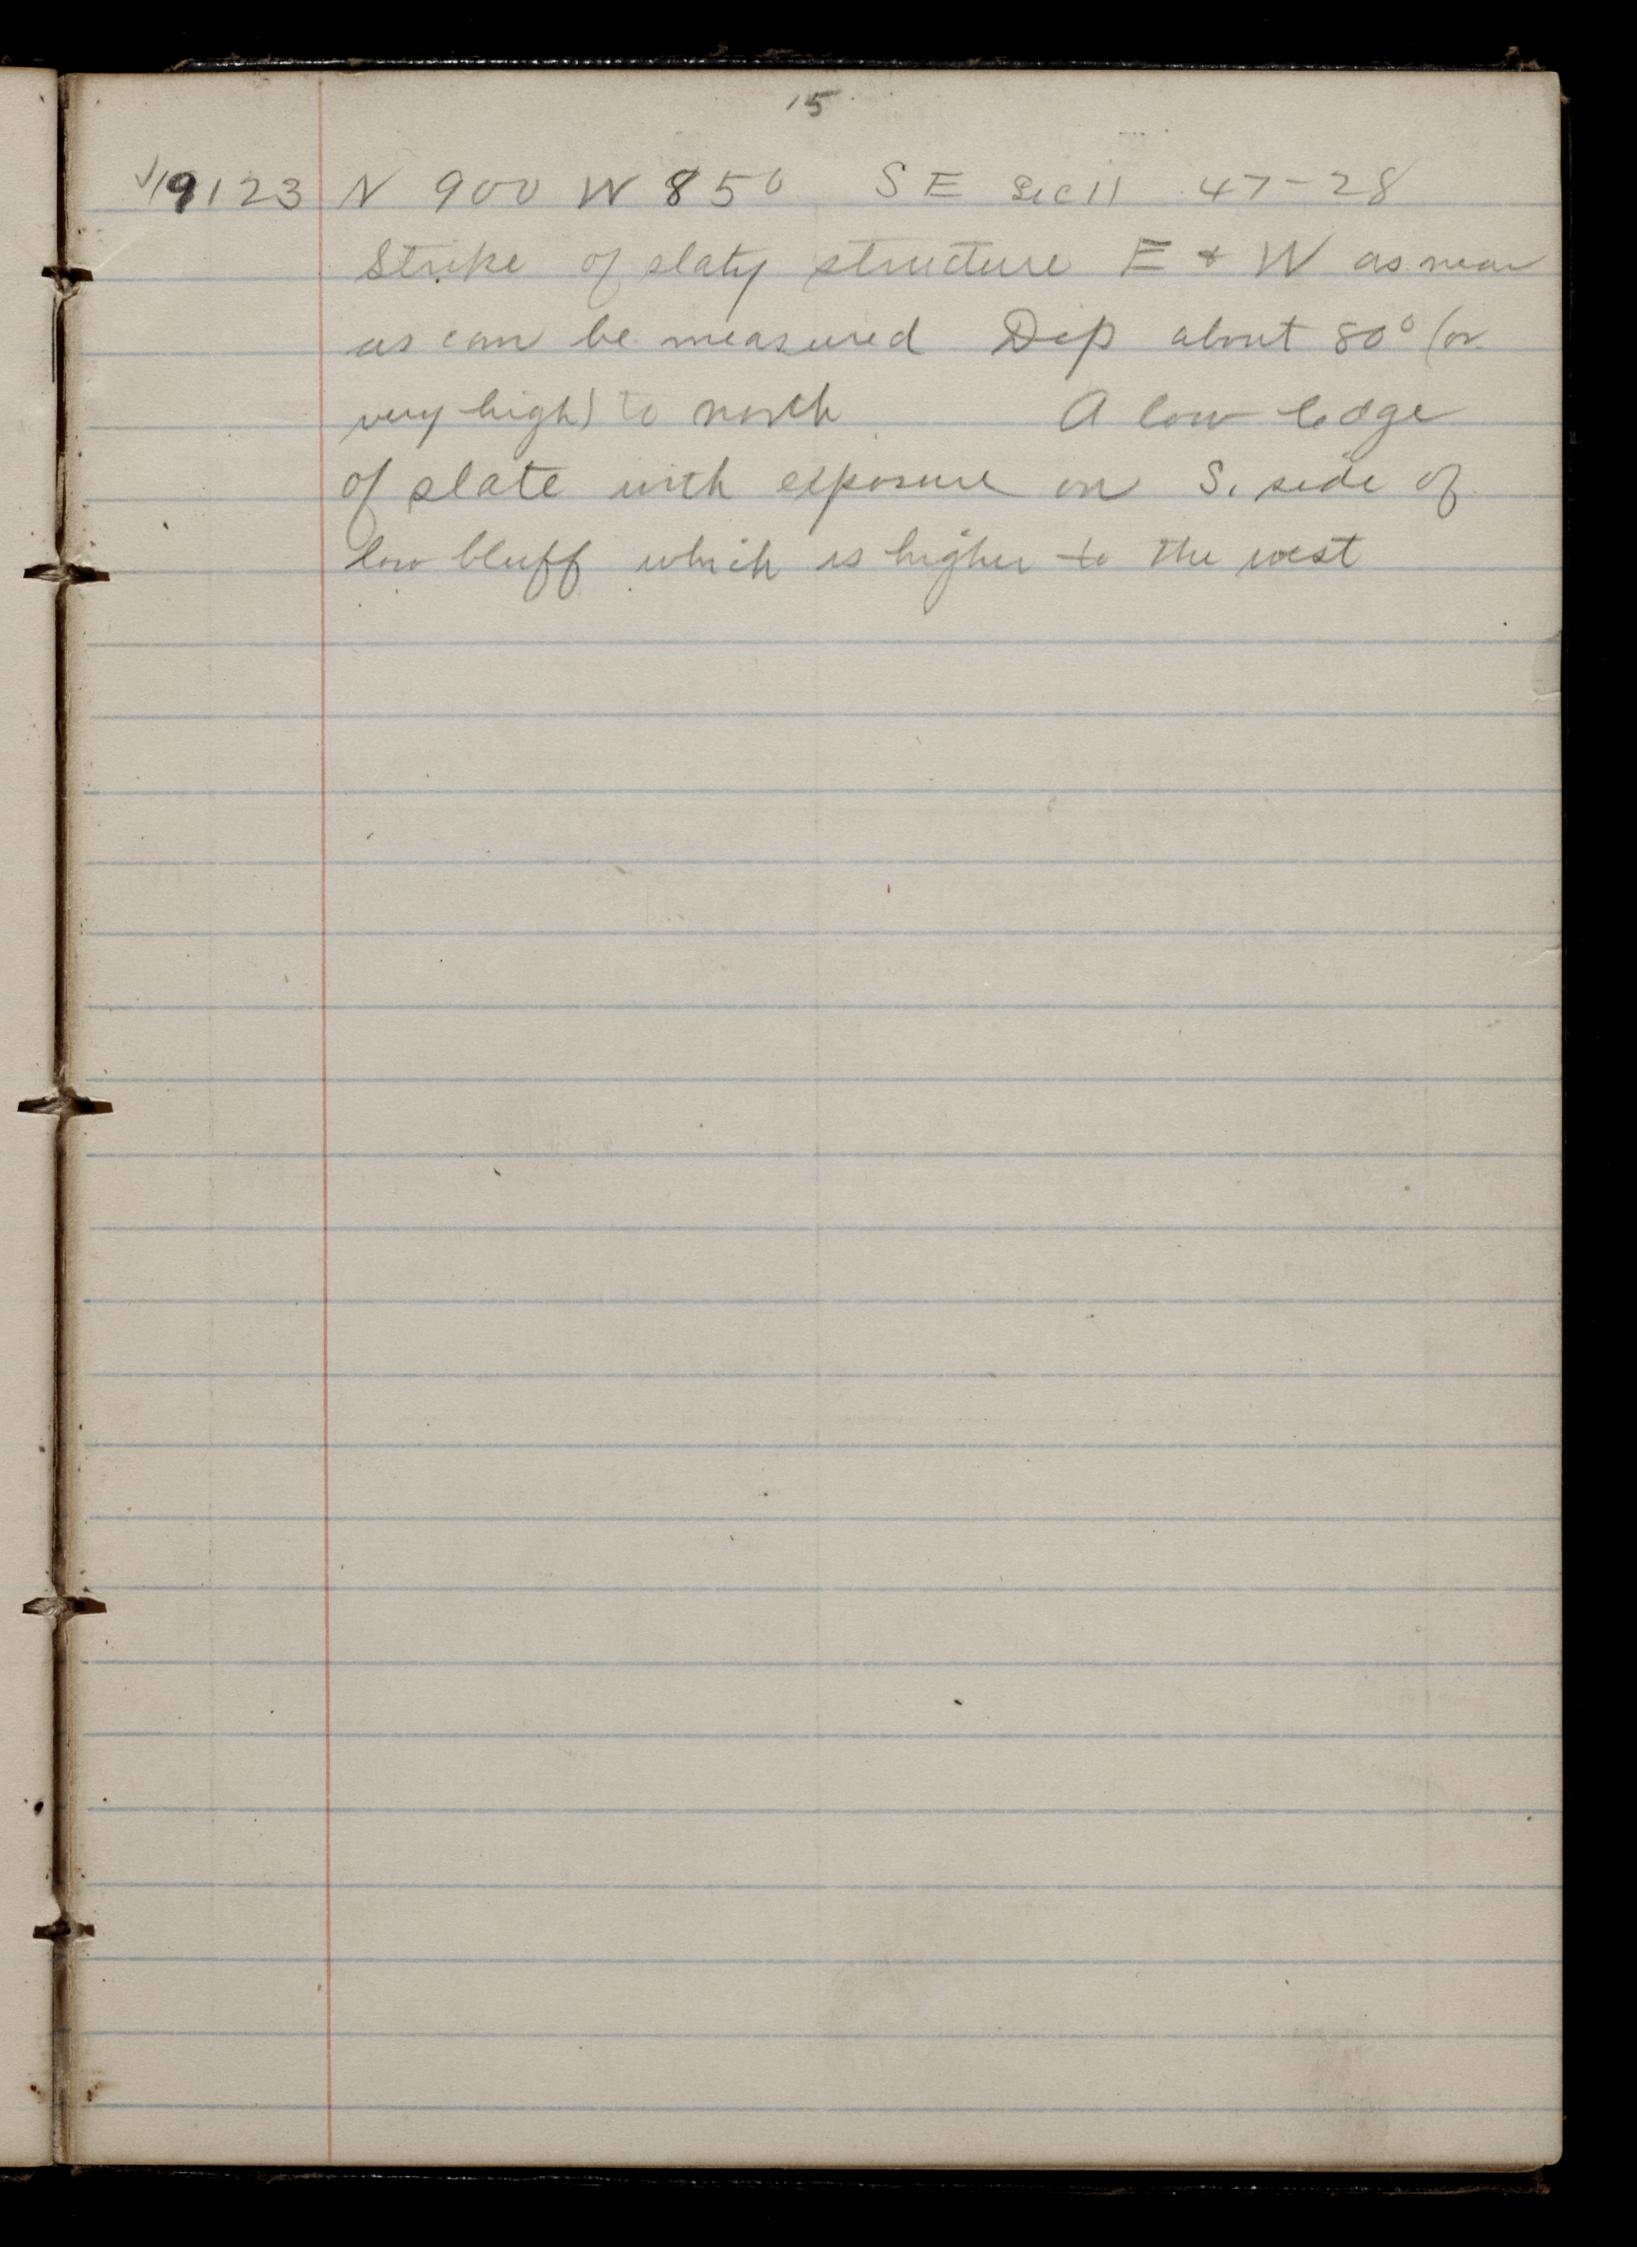 15
√19123 N 900 W 850 SE Sec 11 47-28
Strike of slaty structure E + W as near
as can be measured Dip about 80° (or
very high) to north A low ledge
of slate with exposure on S. side of
low bluff which is higher to the west